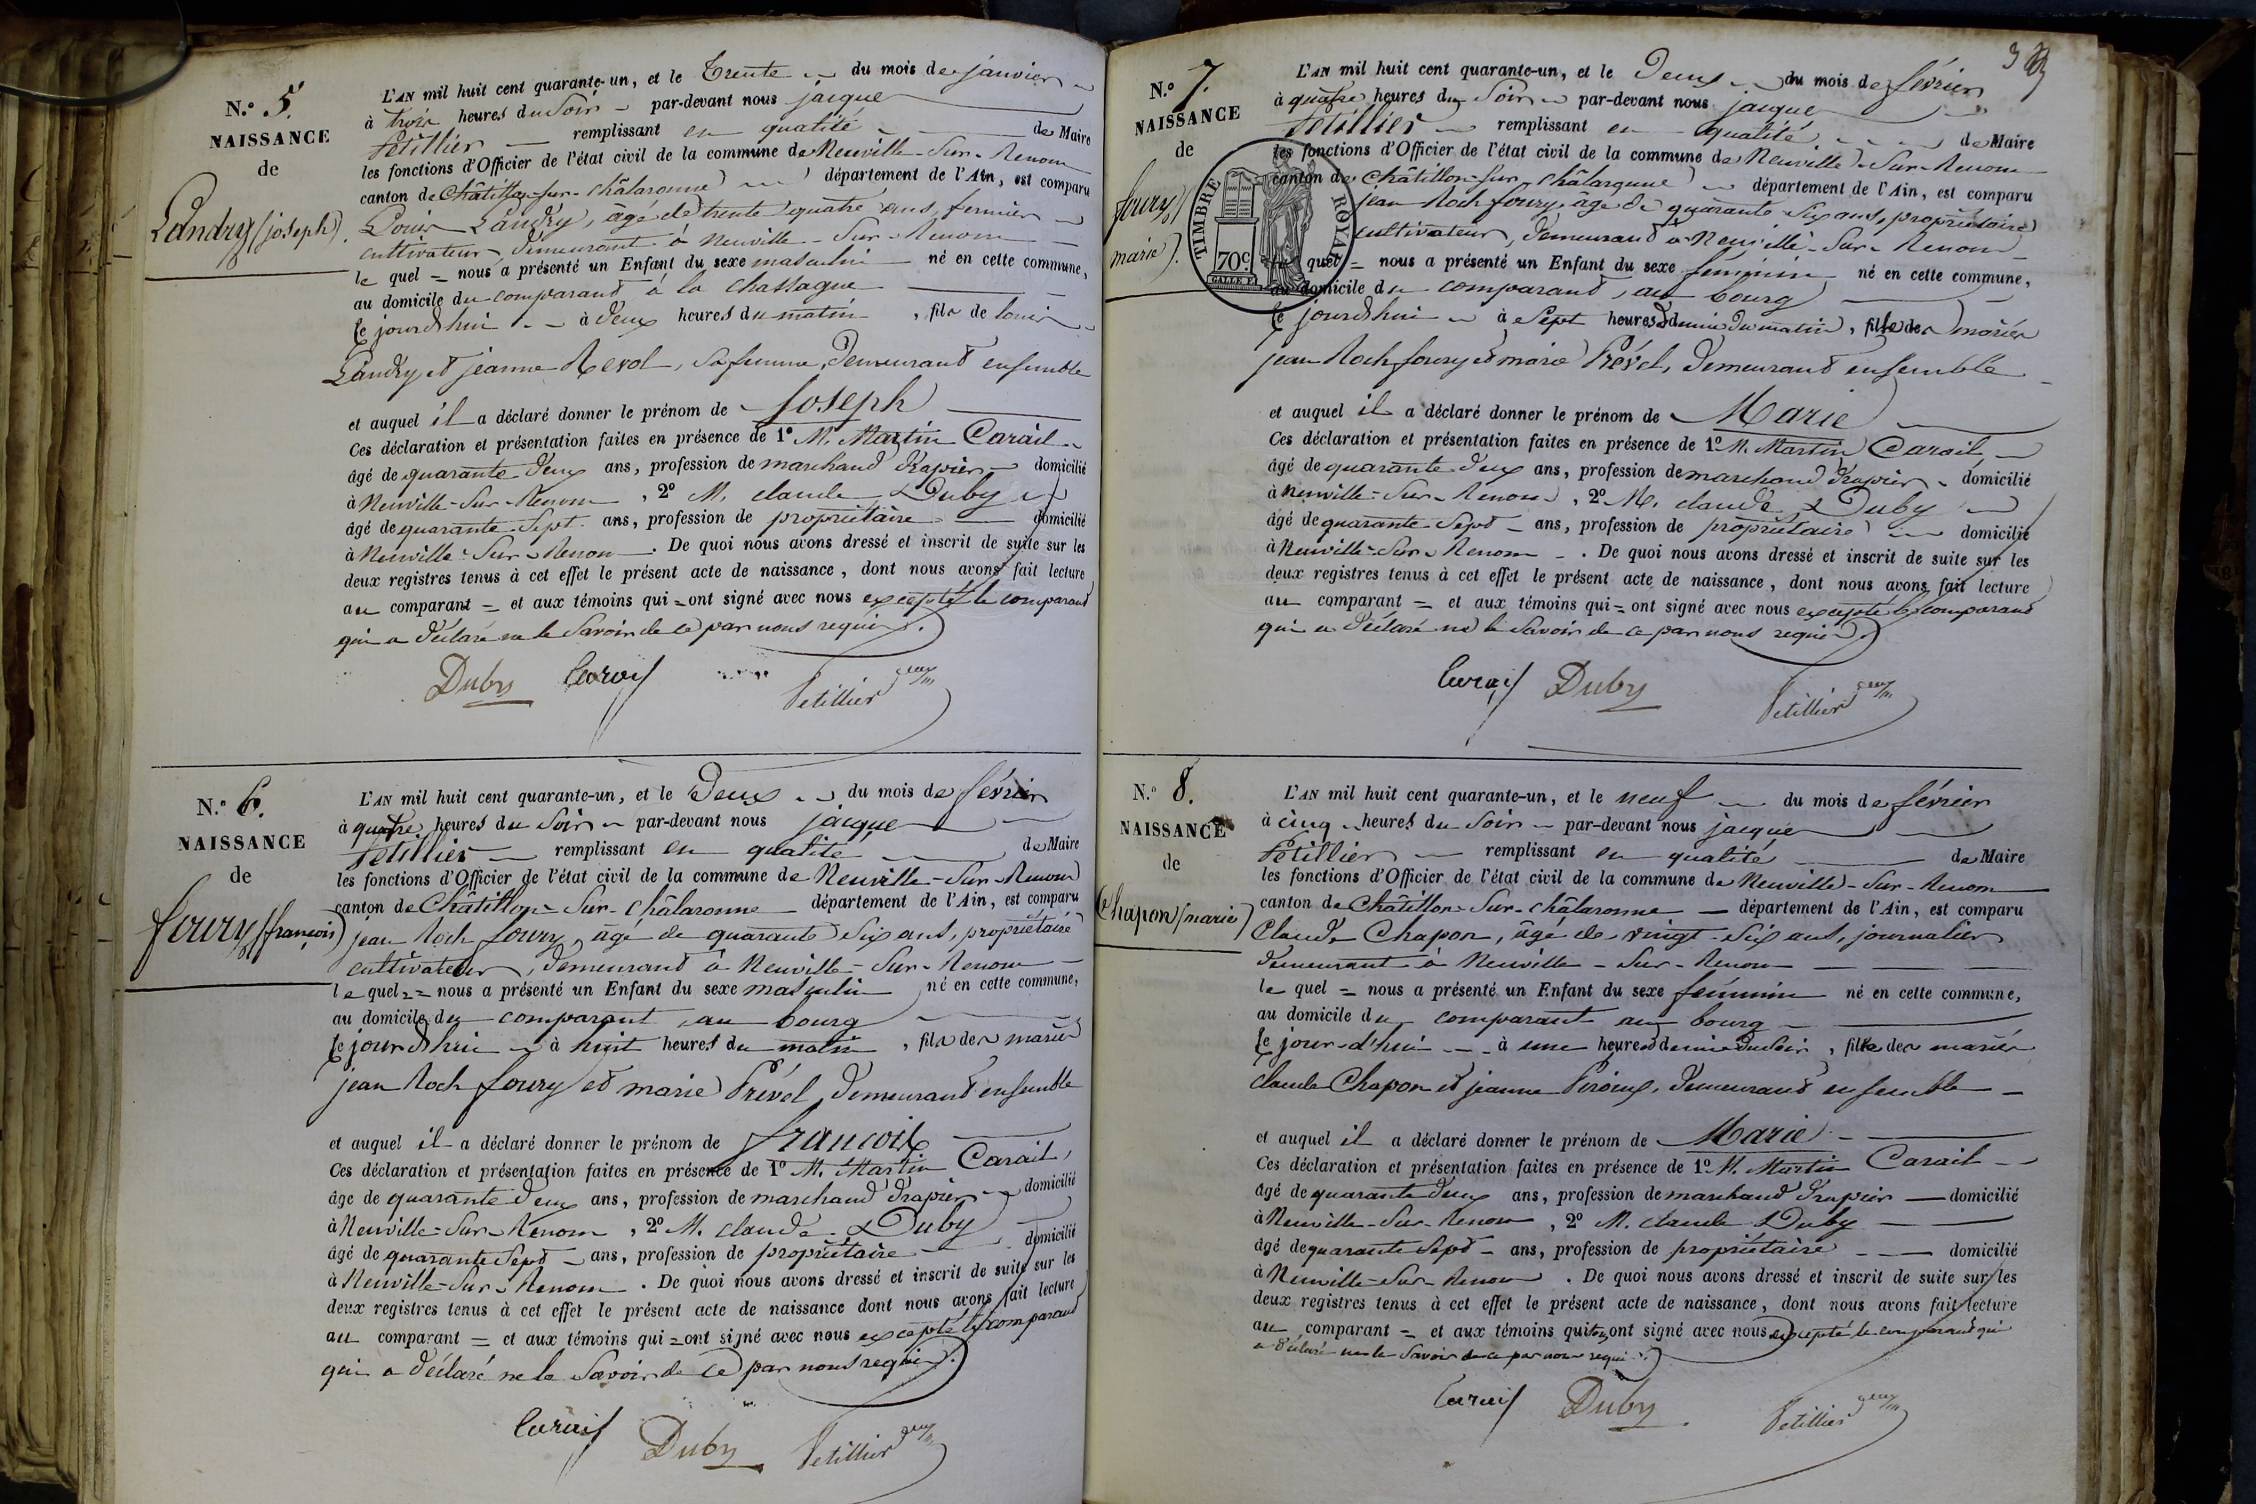 N.° 5.
NAISSANCE
de
Landry (joseph).
L'AN mil huit cent quarante-un, et le Trente du mois de janvier
à trois heures du Soir par-devant nous jacque
Petillier remplissant en qualité de Maire
les fonctions d'Officier de l'état civil de la commune de Neuville-Sur-Renom
canton de Châtillon-sur-Châlaronne département de l'Ain, est comparu
Louis Landry, âgé de trente quatre ans, fermier
cultivateur, demeurant à Neuville-Sur-Renom
le quel = nous a présenté un Enfant du sexe masculin né en cette commune,
au domicile du comparant à la Chassagne
Ce jourd'hui à deux heures du matin, fils de louis
Landry et jeanne Revol, sa femme, demeurant ensemble
et auquel il a déclaré donner le prénom de Joseph
Ces déclaration et présentation faites en présence de 1° M. Martin Carait
âgé de quarante deux ans, profession de marchand drapier domicilié
à Neuville-Sur-Renom, 2° M. claude Duby
âgé de quarante Sept ans, profession de propriétaire domicilié
à Neuville-Sur-Renom. De quoi nous avons dressé et inscrit de suite sur les
deux registres tenus à cet effet le présent acte de naissance, dont nous avons fait lecture
au comparant = et aux témoins qui = ont signé avec nous excepté le comparant
qui a déclaré ne le Savoir de ce par nous requis.
Duby Carait Petillier
N.° 6.
NAISSANCE
de
foury (françois)
L'AN mil huit cent quarante-un, et le Deux du mois de février
à quatre heures du Soir par-devant nous jacque
Petillier remplissant en qualité de Maire
les fonctions d'Officier de l'état civil de la commune de Neuville-Sur-Renom
canton de Châtillon-Sur-Châlaronne département de l'Ain, est comparu
jean Roch foury, âgé de quarante Six ans, propriétaire
cultivateur, demeurant à Neuville-Sur-Renom
le quel = nous a présenté un Enfant du sexe masculin né en cette commune,
au domicile du comparant, au bourg
Ce jourd'hui à huit heures du matin, fils des mariés
jean Roch foury et marie Prével, demeurant ensemble
et auquel il a déclaré donner le prénom de françois
Ces déclaration et présentation faites en présence de 1° M. Martin Carait,
âge de quarante deux ans, profession de marchand drapier domicilié
à Neuville-Sur-Renom, 2° M. claude Duby
âgé de quarante Sept ans, profession de propriétaire domicilié
à Neuville-Sur-Renom. De quoi nous avons dressé et inscrit de suite sur les
deux registres tenus à cet effet le présent acte de naissance dont nous avons fait lecture
au comparant = et aux témoins qui = ont signé avec nous excepté le comparant
qui a déclaré ne le Savoir de ce par nous requis.
Carait Duby Petillier
3
N.° 7.
NAISSANCE
de
foury
marie).
TIMBRE ROYAL
70 c.
L'AN mil huit cent quarante-un, et le Deux du mois de février
à quatre heures du Soir par-devant nous jacque
Petillier remplissant en qualité de Maire
les fonctions d'Officier de l'état civil de la commune de Neuville-Sur-Renom
canton de Châtillon-sur-Châlaronne département de l'Ain, est comparu
jean Roch foury, âgé de quarante Six ans, propriétaire
cultivateur, demeurant à Neuville-Sur-Renom
quel = nous a présenté un Enfant du sexe féminin né en cette commune,
au domicile du comparant, au bourg
Ce jourd'hui à Sept heures et demie du matin, fille des mariés
jean Roch foury et marie Prével, demeurant ensemble
et auquel il a déclaré donner le prénom de Marie
Ces déclaration et présentation faites en présence de 1° M. Martin Carait
âgé de quarante deux ans, profession de marchand drapier domicilié
à Neuville-Sur-Renom, 2° M. claude Duby
âgé de quarante Sept ans, profession de propriétaire domicilié
à Neuville-Sur-Renom. De quoi nous avons dressé et inscrit de suite sur les
deux registres tenus à cet effet le présent acte de naissance, dont nous avons fait lecture
au comparant = et aux témoins qui = ont signé avec nous excepté le comparant
qui a déclaré ne le Savoir de ce par nous requis.
Carait Duby Petillier
N.° 8.
NAISSANCE
de
Chapon (marie)
L'AN mil huit cent quarante-un, et le neuf du mois de février
à cinq heures du Soir par-devant nous jacque
Petillier remplissant en qualité de Maire
les fonctions d'Officier de l'état civil de la commune de Neuville-Sur-Renom
canton de Châtillon-Sur-Châlaronne département de l'Ain, est comparu
Claude Chapon, âgé de vingt-Six ans, journalier
demeurant à Neuville-Sur-Renom
le quel = nous a présenté un Enfant du sexe féminin né en cette commune,
au domicile du comparant au bourg
Ce jour-d'hui à une heure et demie du Soir, fille des mariés
claude Chapon et jeanne demeurant ensemble
et auquel il a déclaré donner le prénom de Marie
Ces déclaration et présentation faites en présence de 1° M. Martin Carait
âgé de quarante deux ans, profession de marchand drapier domicilié
à Neuville-Sur-Renom, 2° M. claude Duby
âgé de quarante Sept ans, profession de propriétaire domicilié
à Neuville-Sur-Renom. De quoi nous avons dressé et inscrit de suite sur les
deux registres tenus à cet effet le présent acte de naissance, dont nous avons fait lecture
au comparant = et aux témoins qui ont signé avec nous excepté le comparant qui
a déclaré ne le Savoir de ce par nous requis.
Carait Duby Petillier